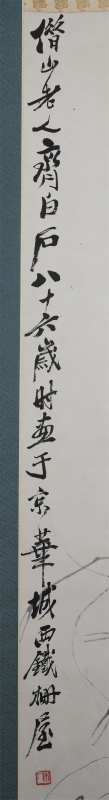 借山老人齊白石八十六歲时畫于京華城西鐵柵屋